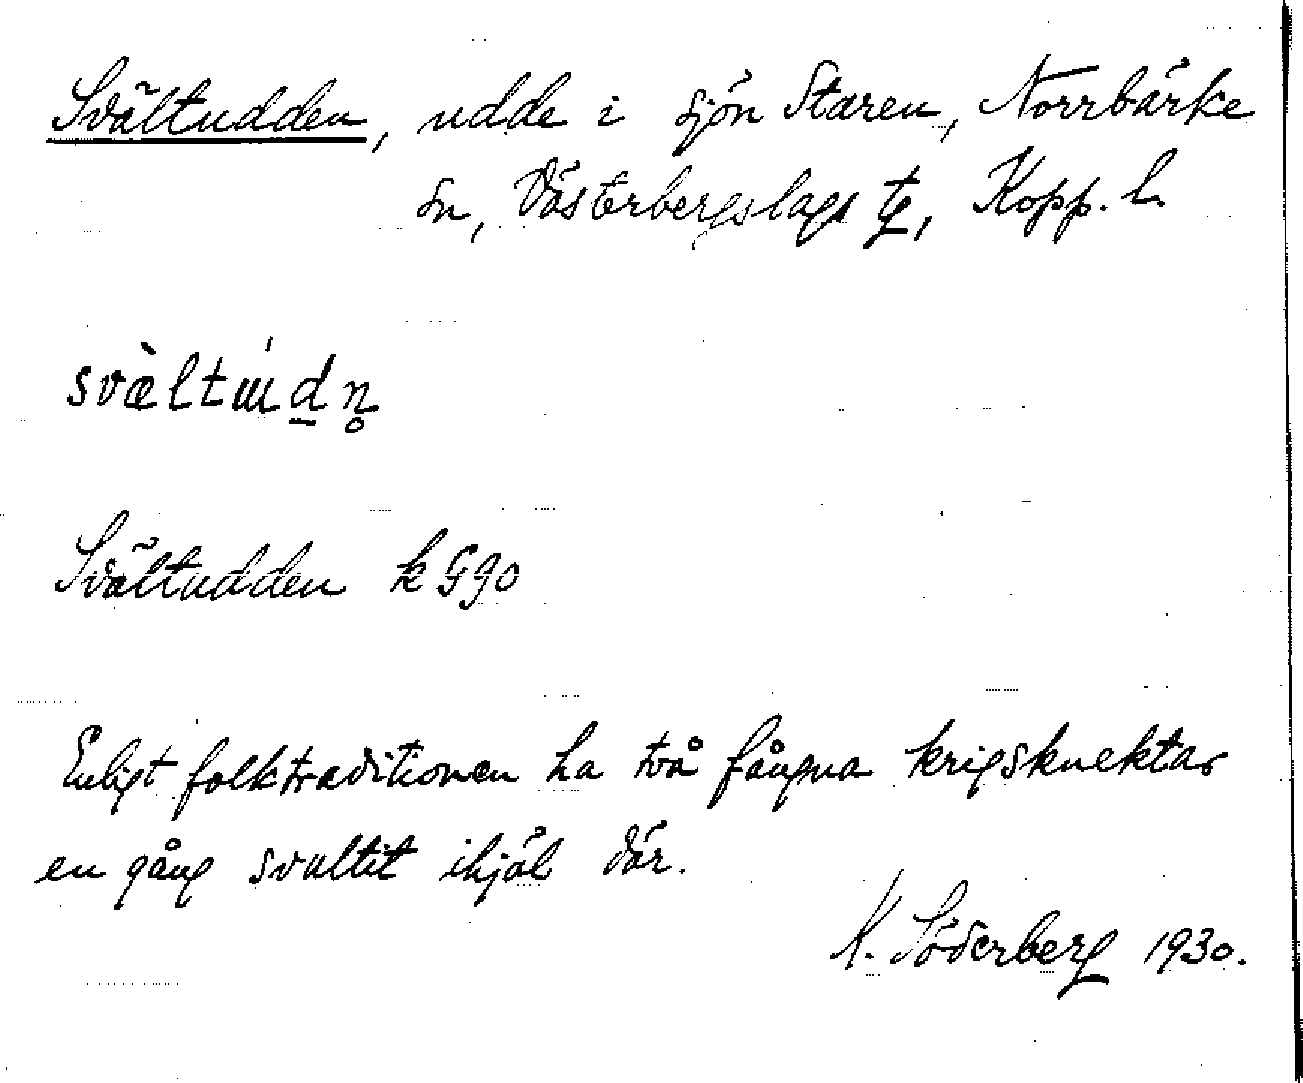 Svältudden, udde i sjön Staren, Norrbärke
sn, Västerbergslags tg, Kopp. l.
svæ̀ltɯ́d̲n̥
Svältudden k G90
Enligt folktraditionen ha två fångna krigsknektar
en gång svultit ihjäl där.
K. Söderberg 1930.